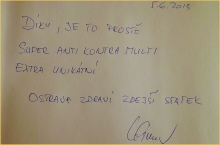 5.6.2018
DÍKY, JE TO PROSTĚ
SUPER ANTI KONTRA MULTI
EXTRA UNIKÁTNÍ
OSTRAVA ZDRAVÍ ZDEJŠÍ STATEK